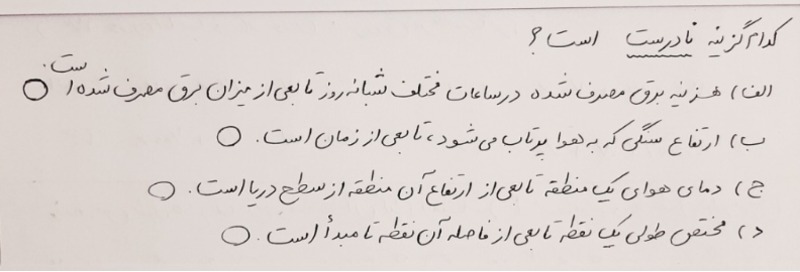 کدام گزینه نادرست است؟
الف) هزینه برق مصرف شده در ساعات مختلف شبانه روز تابعی از میزان برق مصرف شده است.
ب) ارتفاع سنگی که به هوا پرتاب می‌شود، تابعی از زمان است.
ج) دمای هوای یک منطقه تابعی از ارتفاع آن منطقه از سطح دریا است.
د) مختص طولی یک نقطه تابعی از فاصله آن نقطه تا مبدأ است.